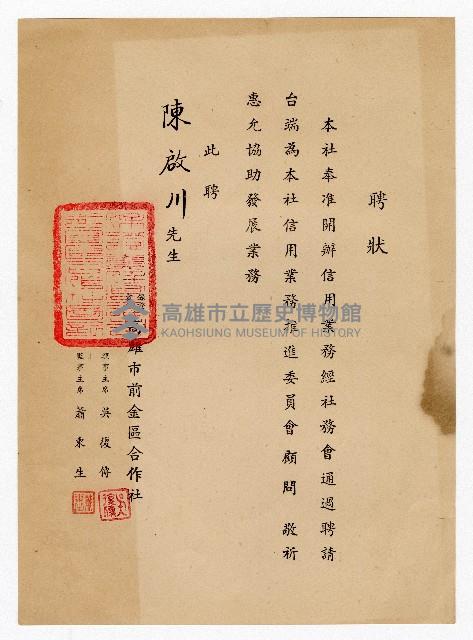 聘狀
本社奉准開辦信用業務經社務會通過聘請
台端為本社信用業務推進委員會顧問 敬祈
惠允協助發展業務
此聘
陳啟川先生
高雄市前金區合作社
理事主席 吳復傳
監察主席 蕭東生
高雄市立歷史博物館
KAOHSIUNG MUSEUM OF HISTORY